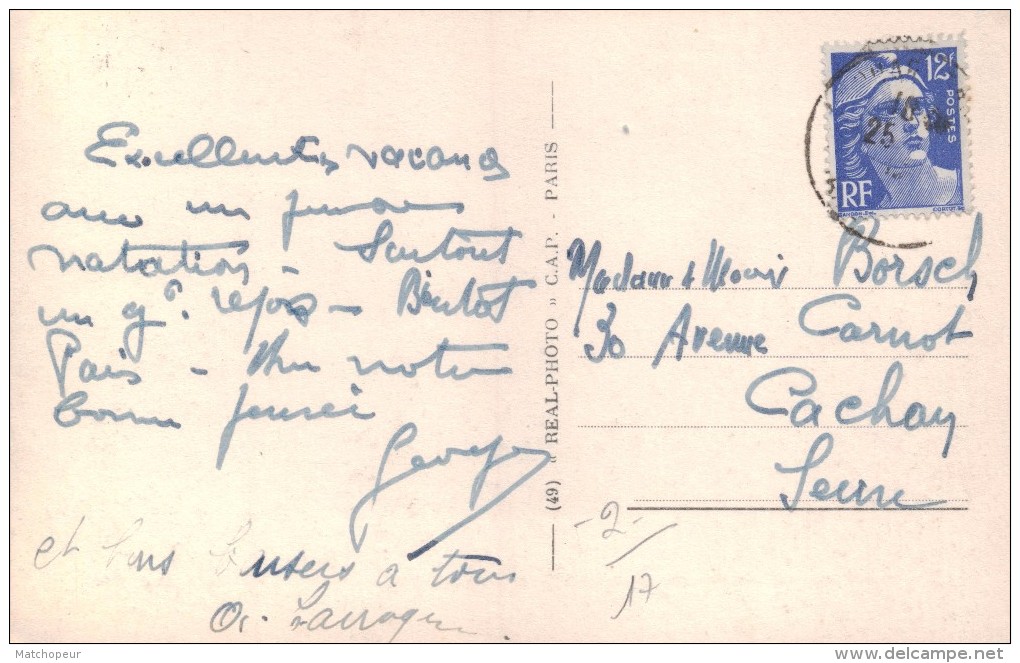 Excellentes vacances
avec un
natation - Surtout
un gd. repos - Bientôt
Paris - notre
bonne pensée
et bons baisers à tous
(49) « REAL-PHOTO » C.A.P. - PARIS
12F
POSTES
RF
GANDON
CORTOT
25
18
Madame & Mour Borsch
30 Avenue Carnot
Cachan
Seine
-2-
17
Matchopeur
www.delcampe.net